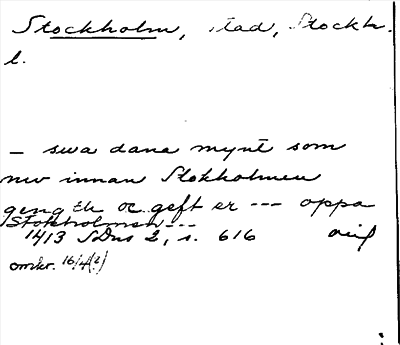 Stockholm, stad, Stockh.
l.
— swa dana mynt som
nw innan Stokholmen
geng Ek oc geft er --- oppa
Stokholmen ---
1413 SDns 2, s. 616
omkr. 16/4(?)